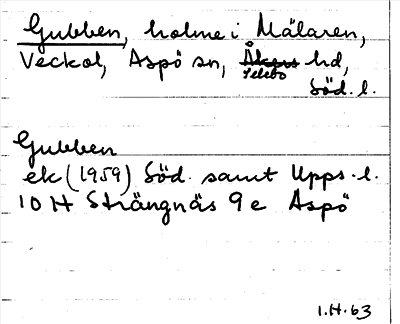 Gubben, holme i Mälaren,
Veckol, Aspö sn, Åkers hd,
Selebo
Söd. l.
Gubben
ek (1959) Söd. samt Upps. l.
10 H Strängnäs 9 e Aspö
1.H.63